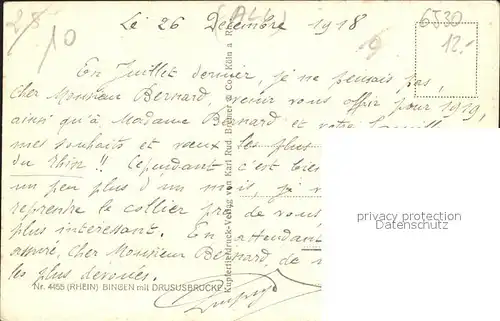 28
10
(ALL)
6530
12.-
Le 26 Décembre 1918
En Juillet dernier, je ne pensais pas,
cher Monsieur Bernard, venir vous offrir pour 1919,
ainsi qu'à Madame Bernard et votre
mes souhaits et vœux les plus
du Rhin !! Cependant c'est bien
un peu plus d'un mois, je
reprendre le collier près de vous,
plus intéressant. En attendant
cher Monsieur Bernard, de
les plus dévoués.
Nr. 4455 (RHEIN) BINGEN mit DRUSUSBRÜCKE
Kupfertiefdruck-Verlag von Karl Rud. Bremer & Co. Köln a. Rh.
privacy protection